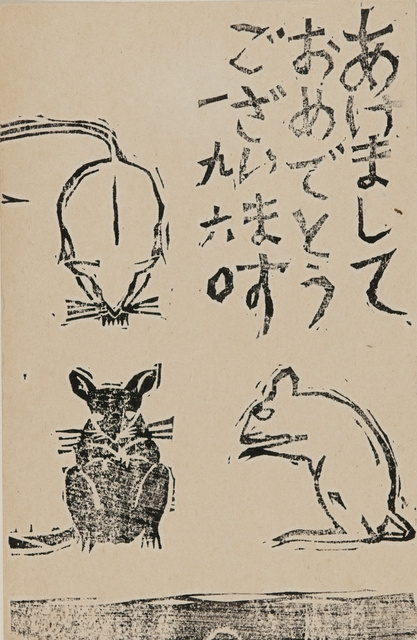 あけまして
おめでとう
ございます
一九六〇